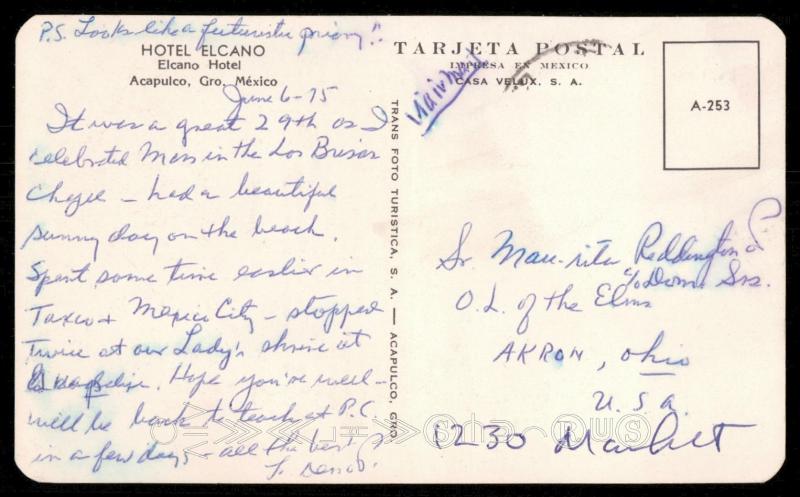 P.S. Looks like a futuristic priory!!
HOTEL ELCANO
Elcano Hotel
Acapulco, Gro. México
June 6-75
It was a great 29th as I
celebrated Mass in the Los Brisas
Chapel - had a beautiful
sunny day on the beach.
Spent some time earlier in
Taxco + Mexico City - stopped
twice at our Lady's shrine at
Guadalupe. Hope you're well -
will be back to teach at P.C.
in a few days - all the best
TRANS FOTO TURISTICA, S. A. — ACAPULCO, GRO
TARJETA POSTAL
IMPRESA EN MEXICO
CASA VELUX, S. A.
A-253
Sr. Reddington
c/o Dom. Srs.
O.L. of the Elms
AKRON, Ohio
U.S.A.
1230 Market